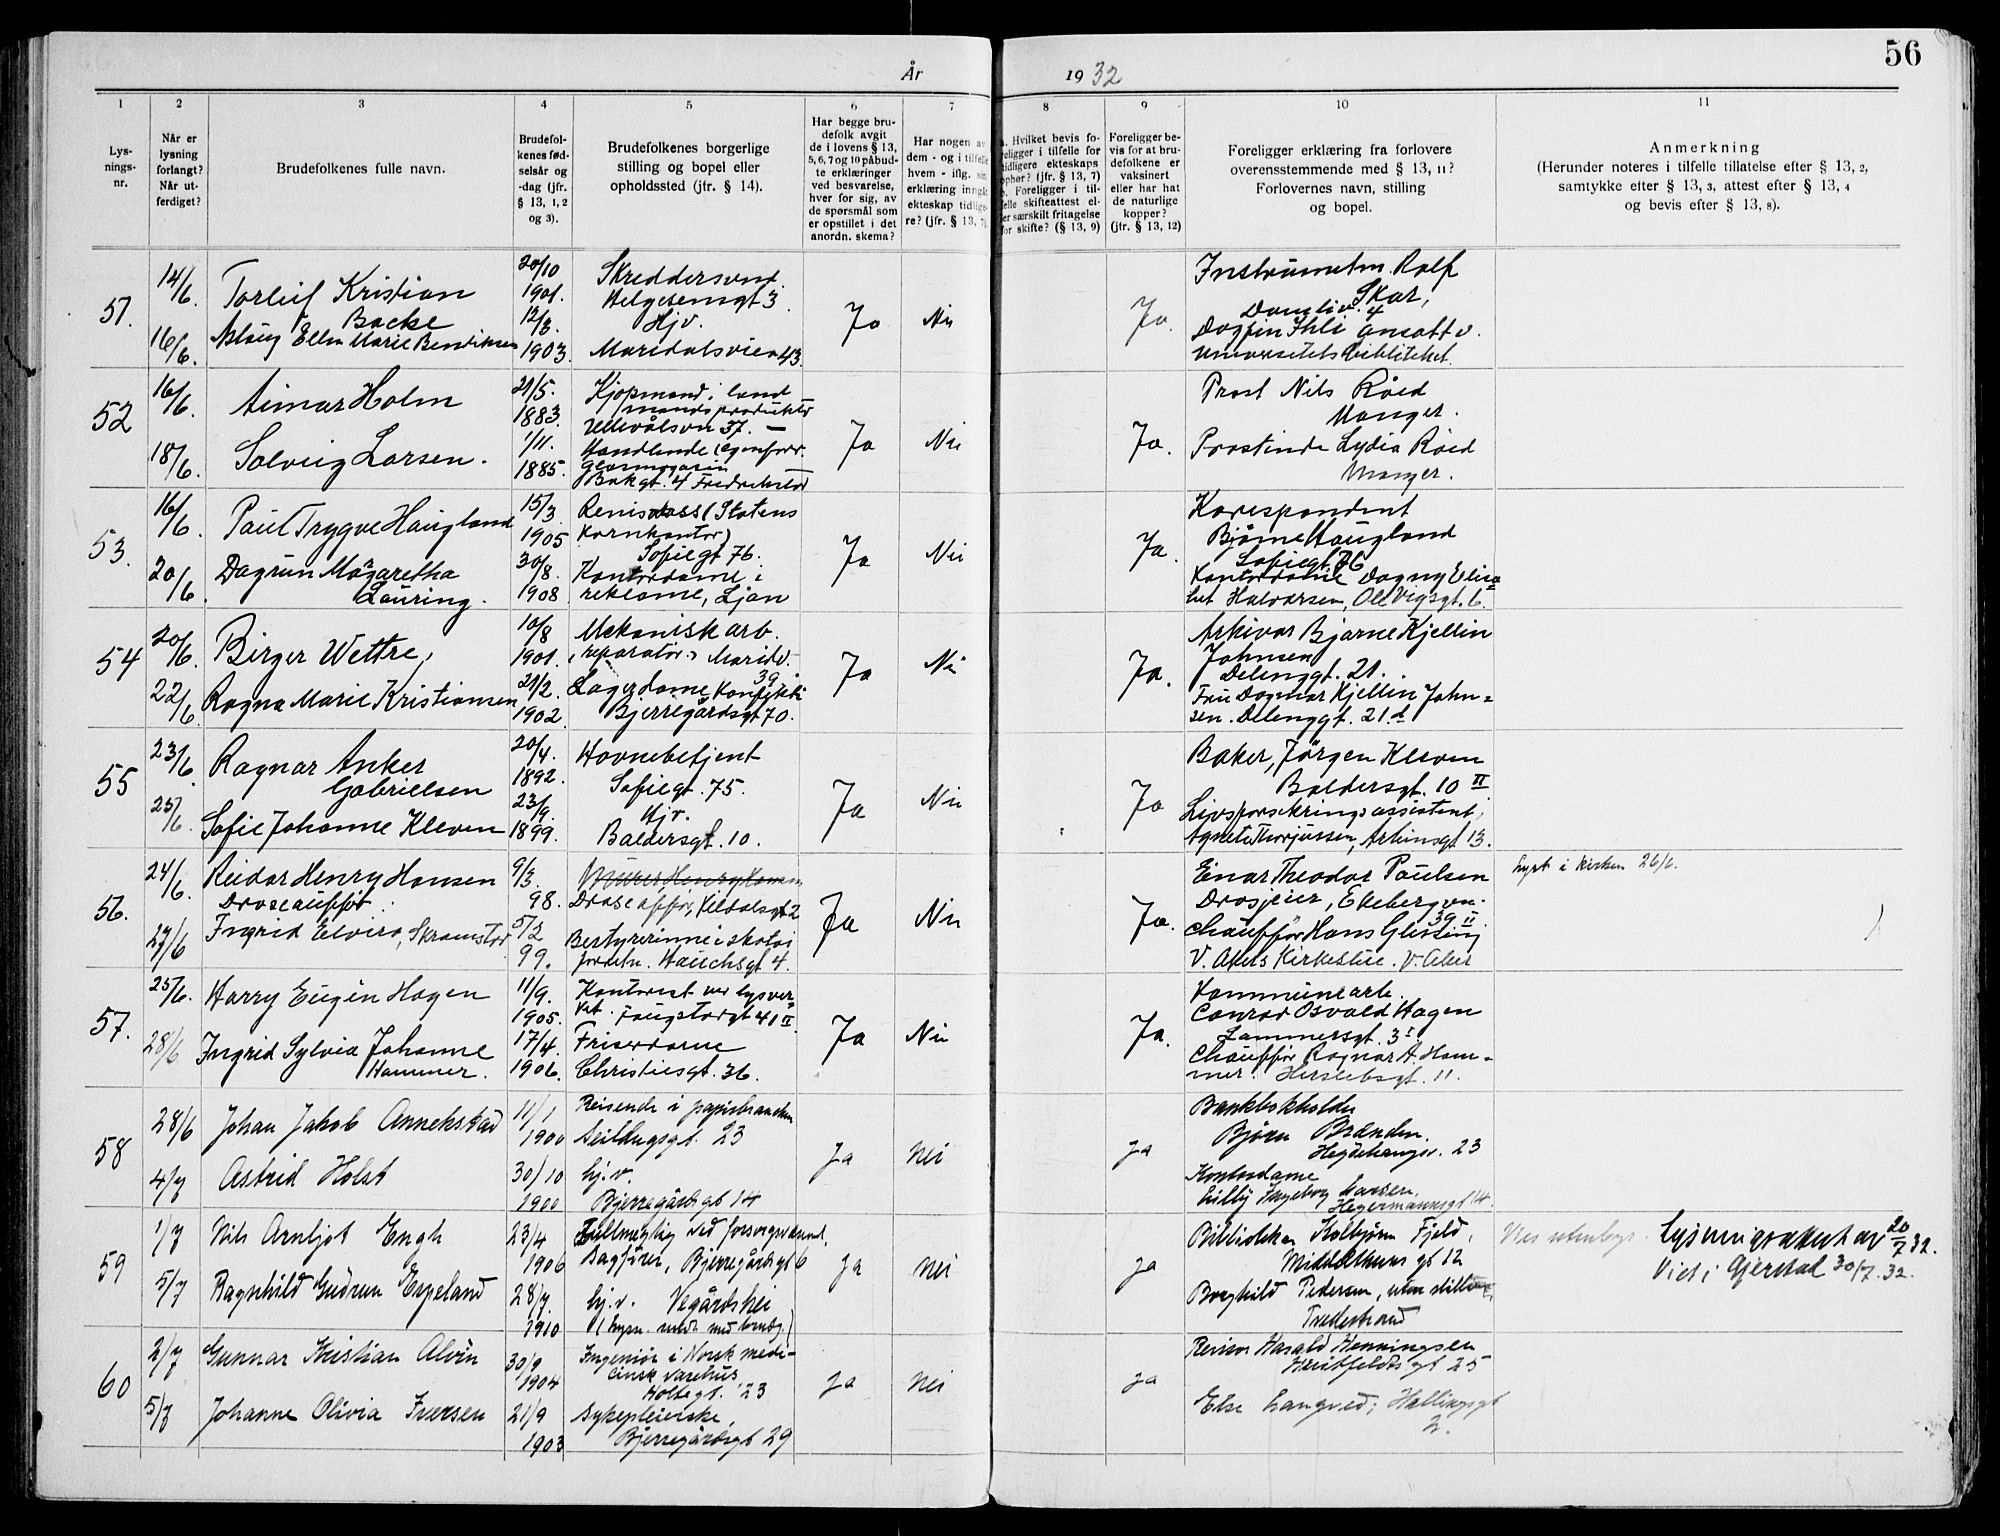 56
År 1932
1 2 3 4 5 6 7 8 9 10 11
Lys-
nings-
nr.
Når er
lysning
forlangt?
Når ut-
ferdiget?
Brudefolkenes fulle navn.
Brudefol-
kenes fød-
selsår og
-dag (jfr.
§ 13, 1, 2
og 3).
Brudefolkenes borgerlige
stilling og bopel eller
opholdssted (jfr. § 14).
Har begge bru-
defolk avgit
de i lovens § 13,
5, 6, 7 og 10 påbud-
te erklæringer
ved besvarelse,
hver for sig, av
de spørsmål som
er opstillet i det
anordn. skema?
Har nogen av
dem - og i tilfelle
hvem - iflg. sin
erklæring inngik
ekteskap tidlige-
re? (jfr. § 13, 7)
a. Hvilket bevis fo-
religger i tilfelle for
tidligere ekteskaps
ophør? (jfr. § 13, 7)
b. Foreligger i til-
felle skifteattest el-
ler særskilt fritagelse
for skifte? (§ 13, 9)
Foreligger be-
vis for at bru-
defolkene er
vaksinert
eller har hat
de naturlige
kopper?
(jfr. § 13, 12)
Foreligger erklæring fra forlovere
overensstemmende med § 13, 11?
Forlovernes navn, stilling
og bopel.
Anmerkning
(Herunder noteres i tilfelle tillatelse efter § 13, 2,
samtykke efter § 13, 3, attest efter § 13, 4
og bevis efter § 13, 8).
51.
14/6.
16/6.
Torleif Kristian
Backe
Aslaug Ellen Marie Bendiksen
20/10
1901.
12/3.
1903.
Skreddersvend
Helgesensgt 3
Hjv.
Maridalsveien 43.
Ja
Nei
Ja.
Instrumentm. Rolf
Skar,
4
Dagfin Ihle ansatt v.
Universitetsbiblioteket.
52
16/6.
18/6.
Aimar Holm
Solveig Larsen.
21/5.
1883.
1/11.
1885.
Kjøpmand i land
mandsprodukter
Ullevålsvn 37. —
Handlende (egen forr.
Glasmagasin
Bakgt. 4 Fredrikstad
Ja
Nei
Ja.
Prost Nils Røed
Manger.
Prostinde Lydia Røed
Manger.
53.
16/6.
20/6.
Paul Trygve Haugland
Dagrun Margaretha
Lauring.
15/3.
1905
30/8.
1908.
(Statens
Kornkontor)
Sofiegt 76.
Kontordame i
reklame, Ljan
Ja
Nei
Ja.
Korespondent
Bjarne Haugland
Sofiegt 76
Kontordame Dagny Elisa
bet Halvorsen, Ole Vigsgt. 6.
54
20/6.
22/6.
Birger Wettre,
Ragna Marie Kristiansen
10/8
1901.
21/2.
1902.
Mekanisk arb.
(reparatør) Maridv.
39
Lagerdame, Konfekti
Bjerregårdsgt 70.
Ja
Nei
Ja.
Arkivar Bjarne Kjellin
Johnsen
Delenggt. 21.
Fru Dagmar Kjellin John-
sen. Delenggt. 21.d
55
23/6.
25/6.
Ragnar Anker
Gabrielsen
Sofie Johanne Kleven
20/4.
1892.
23/9.
1899.
Havnebetjent
Sofiegt. 75.
Hjv.
Baldersgt. 10.
Ja
Nei
Ja
Baker, Jørgen Kleven
Baldersgt. 10 II
Livsforsikringsassistent,
Agnete Thorjussen, Arbinsgt 13.
56.
24/6.
27/6
Reidar Henry Hansen
Ingrid Elvira, Skramstad
9/3.
98.
5/2
99.
Bestyrerinne i skotøi
forretn. Hauchsgt 4.
Ja
Nei
Ja.
Einar Theodor Paulsen
Drosjeier, Ekebergvn.
39 II
Chauffør Hans Glissing
V. Akers Kirkestue. V. Aker
Lyst i kirken 26/6.
57.
25/6.
28/6
Harry Eugen Hagen
Ingrid Sylvia Johanne
Hammer.
11/9.
1905.
17/4.
1906.
Kontorist ved lysver-
ket. Faugstadgt 41 II
Friserdame
Christiesgt. 36.
Ja
Nei
Ja.
Kommunearb.
Conrad Osvald Hagen
Lammersgt. 3 I
Chauffør Ragnar A. Ham-
mer. Herslebsgt. 11.
58
28/6
4/7
Johan Jakob Annekstad
Astrid Holst
11/1
1900
30/10
1900
Reisende i papirbranchen
Seildugsgt. 23
hj.v.
Bjerregårdsgt 14
Ja
Nei
Ja
Bankbokholder
Bjørn Brænden.
Hegdehaugsv. 23
Kontordame
Lilly Ingeborg Larsen,
Hegermannsgt 14
59
1/7
5/7
Nils Arnljot Engh
Ragnhild Gudrun Espeland
23/4
1906
28/7.
1910
Fullmegtig ved forsorgsvesenet,
Sagfører, Bjerregårdsgt 6
hj.v. Vegårdshei
Ja
Nei
Ja
Bibliotekar Kolbjørn Fjeld,
Middelthuns gt 12
Borghild Pedersen, uten stilling,
Tvedestrand
Vies utenbys.
Lysningsattest av 20/7 32.
Viet i Gjerstad 30/7. 32.
60
2/7
5/7
Gunnar Kristian Alvin
Johanne Olivia Iversen
30/9
1904
21/9
1903
Ingeniør i Norsk medi-
cinsk varehus
Holtegt. 23
Sykepleierske,
Bjerregårdsgt 29
Ja
Nei
Ja
Revisor Harald Henningsen
Huitfeldts gt 25
Else Langved; Hallingsgt
2.